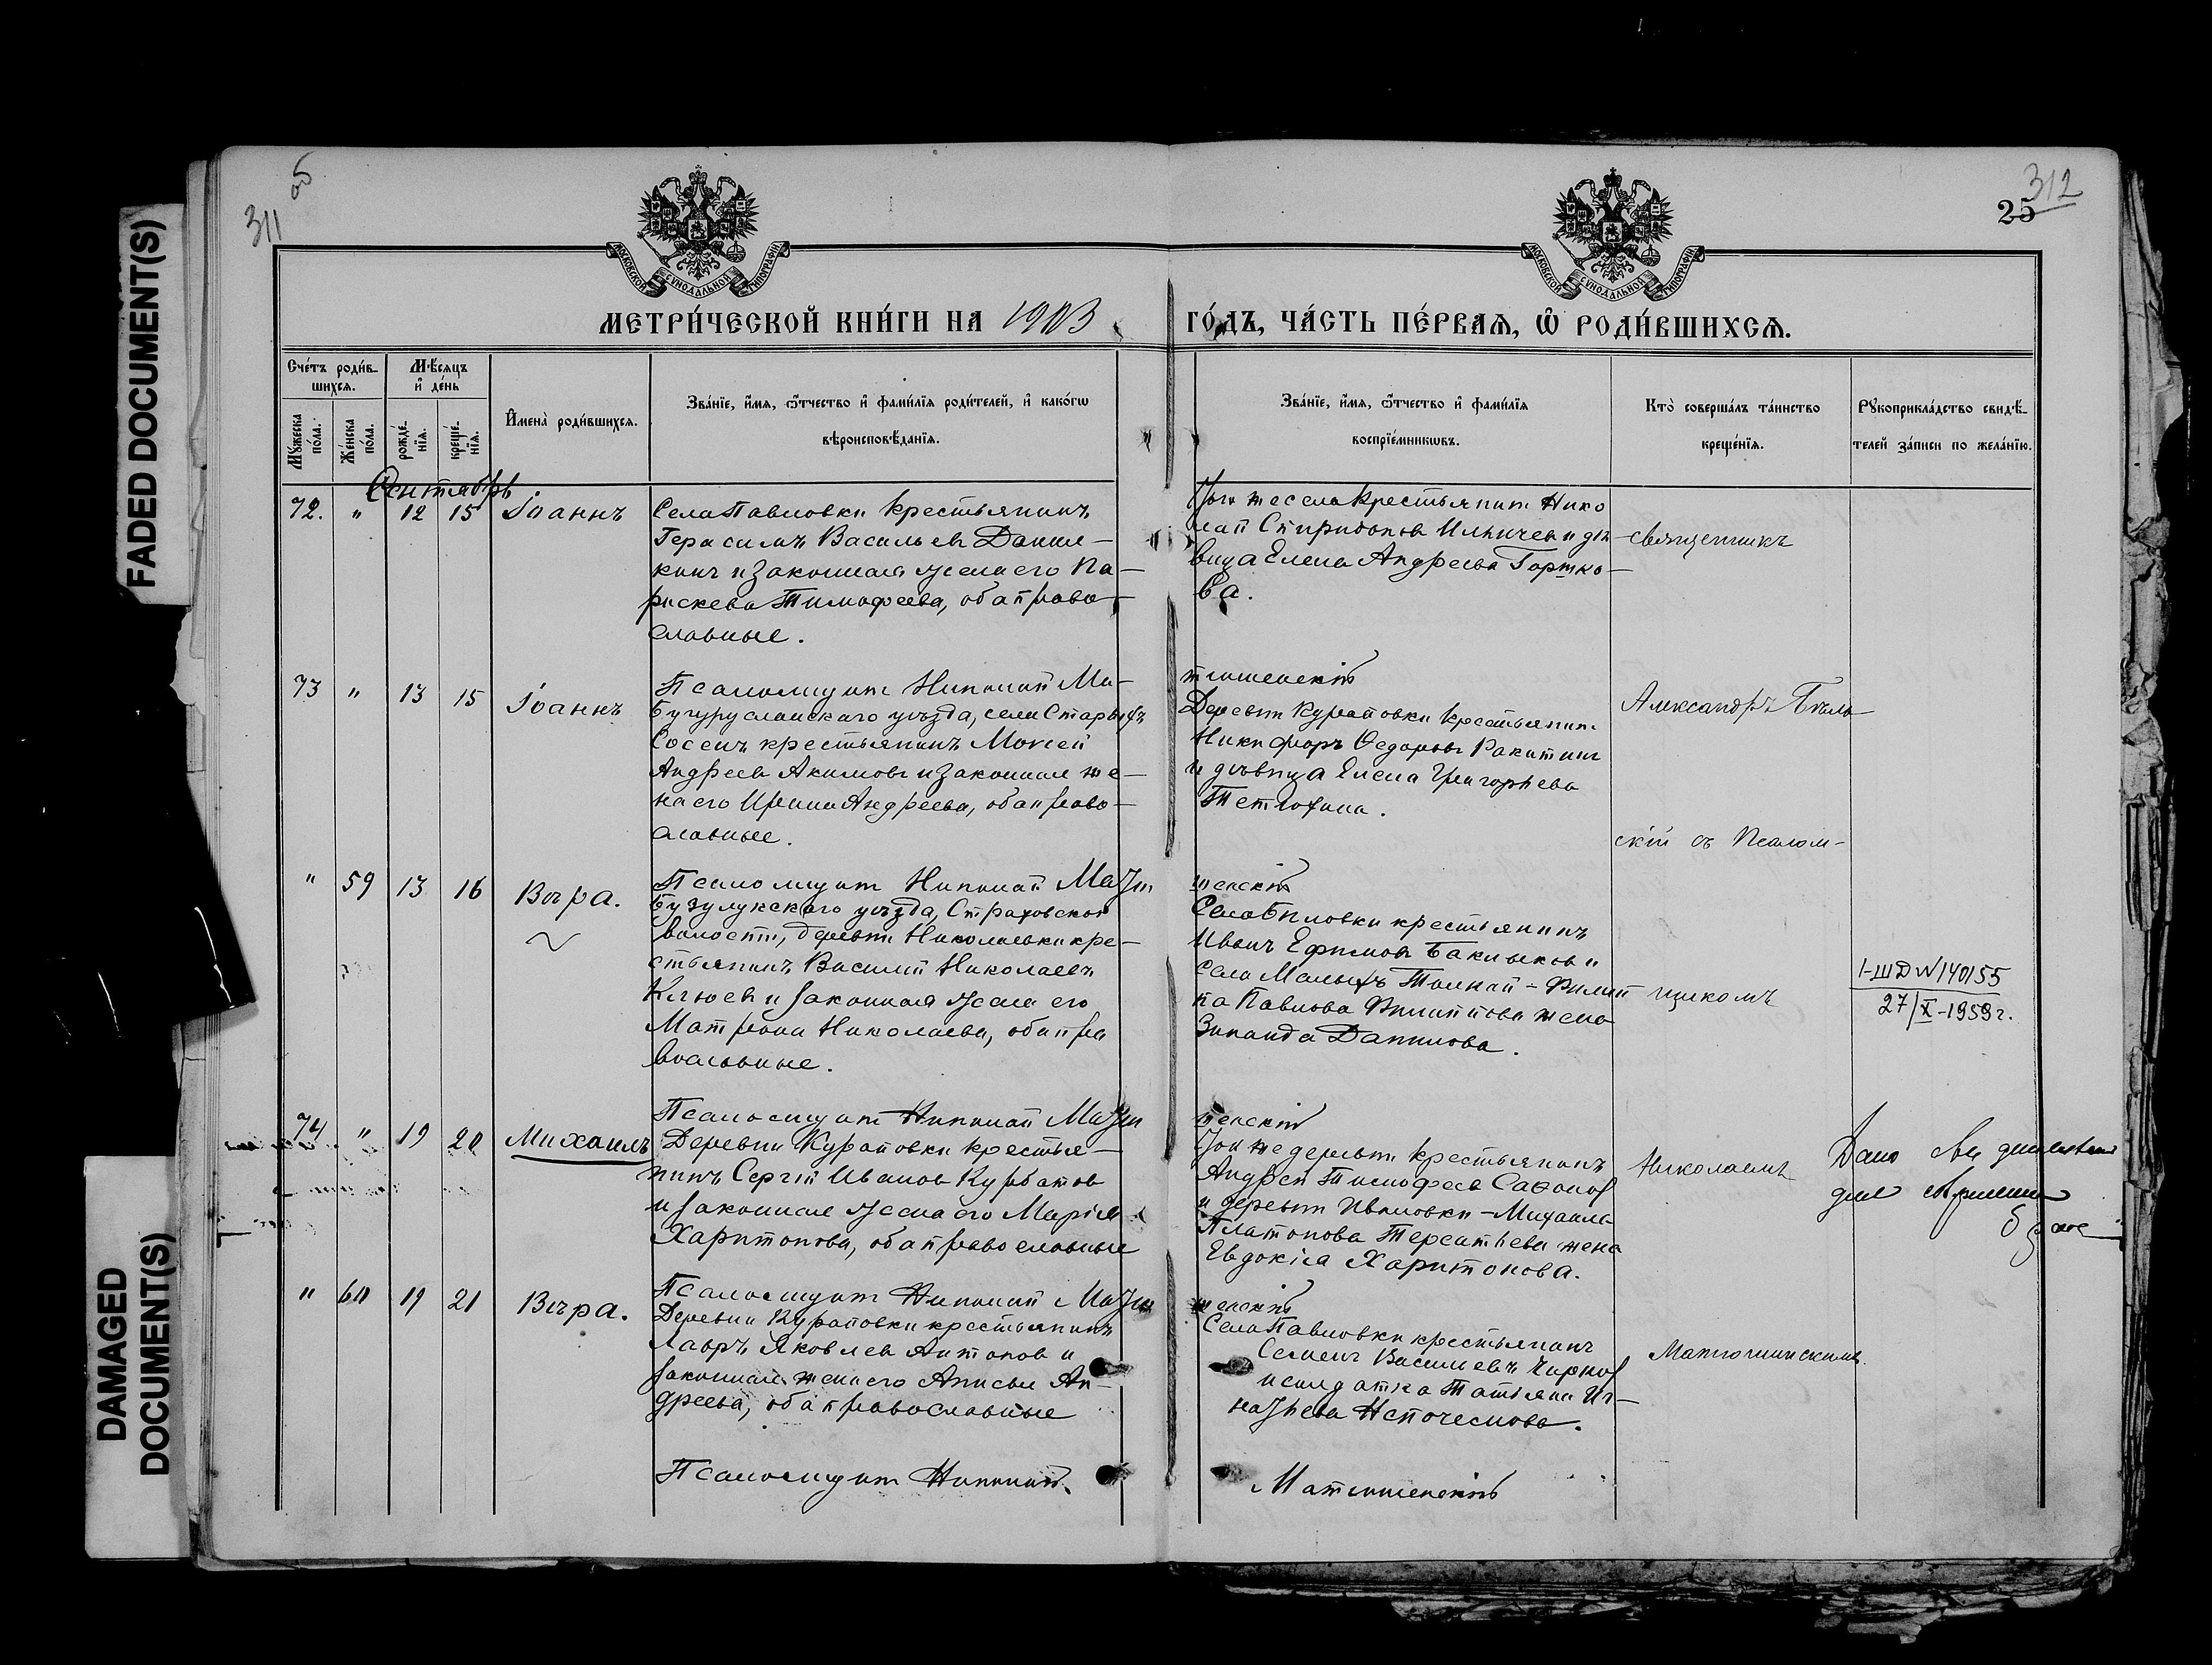 FADED DOCUMENT(S)
DAMAGED
DOCUMENT(S)
311
об
312
25
МОСКОВСКОЙ СѴНОДАЛЬНОЙ ТИПОГРАФІИ
МОСКОВСКОЙ СѴНОДАЛЬНОЙ ТИПОГРАФІИ
МЕТРИ́ЧЕСКОЙ КНИ́ГИ НА 1903
ГО́ДЪ, ЧА́СТЬ ПЕ́РВАѦ, Ѽ РОДИ́ВШИХСѦ.
Сче́тъ роди́в-
шихсѧ.
Мꙋ́жеска
по́ла.
Же́нска
по́ла.
Мѣ́сѧцъ
и҆ де́нь
рожде́-
нїѧ.
креще́-
нїѧ.
И҆мена̀ роди́вшихсѧ.
Зва́нїе, и҆́мѧ, ѻ҆́тчество и҆ фами́лїѧ роди́телей, и҆ како́гѡ
вѣроисповѣ́данїѧ.
Зва́нїе, и҆́мѧ, ѻ҆́тчество и҆ фами́лїѧ
воспрїе́мникѡвъ.
Кто̀ соверша́лъ та́инство
креще́нїѧ.
Рꙋкоприкла́дство свидѣ́-
телей за́писи по жела́нїю.
Сентябрь
72. " 12 15 Іоаннъ
Села Павловки крестьянинъ
Герасимъ Васильевъ Данил-
кинъ и законная жена его Па-
раскева Тимофеева, оба право-
славные.
Того же села крестьянинъ Нико
лай Спиридоновъ Ильичевъ и дѣ-
вица Елена Андреева Горшко-
ва.
Священникъ
Псаломщикъ Николай Ма-
тюшенскій
73 " 13 15 Іоаннъ
Бугурусланскаго уѣзда, села Старыхъ
Сосенъ крестьянинъ Моисей
Андреевъ Акимовъ и законная же-
на его Ирина Андреева, оба право-
славные.
Деревни Куратовки крестьянинъ
Никифоръ Ѳедоровъ Ракитинъ
и дѣвица Елена Григорьева
Александръ Бѣль-
скій съ Псалом-
Псаломщикъ Николай Матю
шенскій
" 59 13 16 Вѣра.
Бузулукскаго уѣзда, Страховской
волости, деревни Николаевки кре-
стьянинъ Василій Николаевъ
Клюевъ и законная жена его
Матрона Николаева, оба пра
вославные.
крестьянинъ
Иванъ Ефимовъ и
села Малыхъ Толкай - Филип
па Павлова Филиппова жена
Зинаида Данилова.
щикомъ
I-ШД N 140155
27/X-1959г.
Псаломщикъ Николай Матю
шенскій
74 " 19 20 Михаилъ
Деревни Куратовки крестья-
нинъ Сергій Ивановъ Курбатовъ
и законная жена его Марія
Харитонова, оба православные
Той же деревни крестьянинъ
Андрей Тимофеевъ Сафонов
и деревни Ивановки - Михаила
Платонова Терентьева жена
Евдокія Харитонова.
Николаемъ
Дано
Псаломщикъ Николай Матю
шенскій
" 60 19 21 Вѣра.
Деревни Куратовки крестьянинъ
Лавръ Яковлевъ Антоновъ и
законная жена его Анисья Ан-
дреева, оба православные
Села Павловки крестьянинъ
Семенъ Васильевъ Чирков
и солдатка Татьяна Иг-
натьева
Матюшинскимъ
Псаломщикъ Николай
Матюшенскій